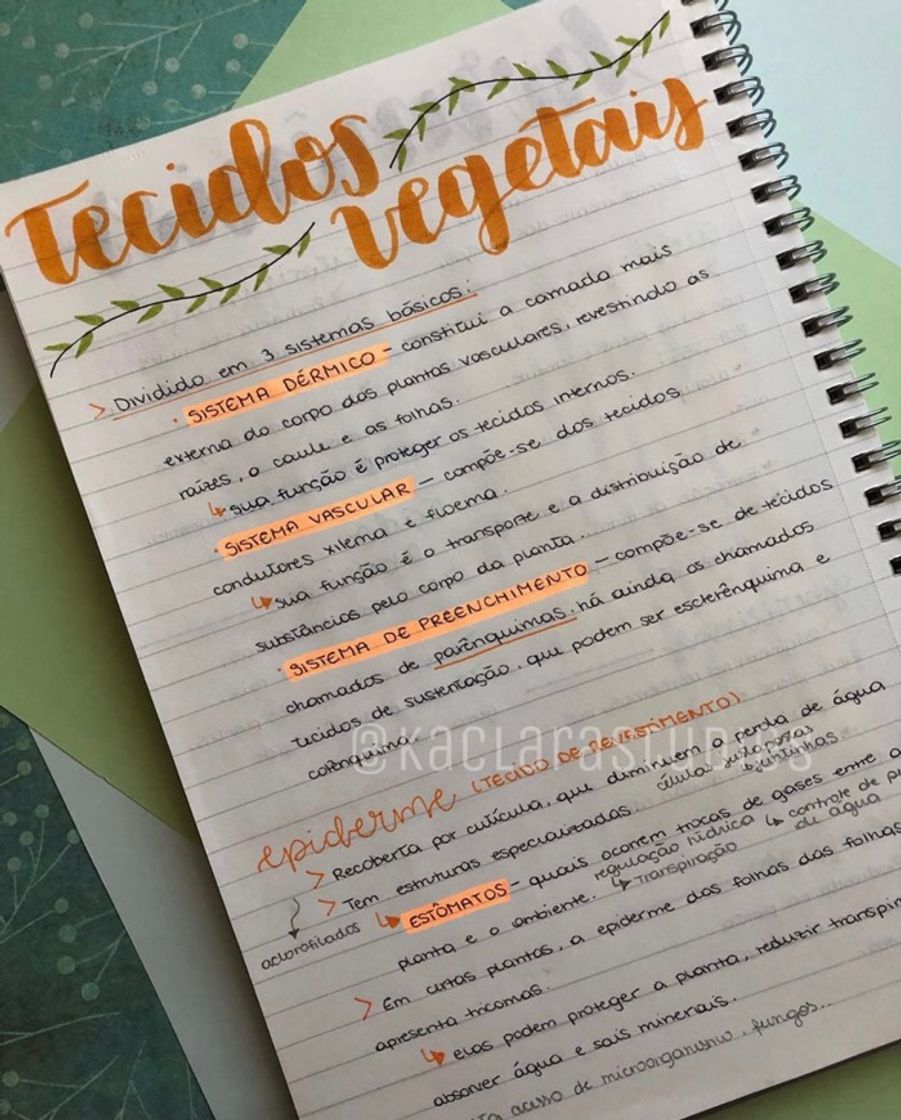 Tecidos
vegetais
> Dividido em 3 sistemas básicos:
· SISTEMA DÉRMICO - constitui a camada mais
externa do corpo das plantas vasculares, revestindo as
raízes, o caule e as folhas.
↳ sua função é proteger os tecidos internos.
· SISTEMA VASCULAR - compõe-se dos tecidos
condutores xilema e floema.
↳ sua função é o transporte e a distribuição de
substâncias pelo corpo da planta.
· SISTEMA DE PREENCHIMENTO - compõe-se de tecidos
chamados de parênquimas. há ainda os chamados
tecidos de sustentação, que podem ser esclerênquima e
colênquima.
@kaclarastudies
epiderme (TECIDO DE REVESTIMENTO)
> Recoberta por cutícula, que diminuem a perda de água
células
justinhas.
> Tem estruturas especializadas.
aclorofilados
↳ ESTÔMATOS - quais ocorrem trocas de gases entre a
planta e o ambiente.
regulação hídrica ↳ controle de
↳ Transpiração
de água
> Em certas plantas, a epiderme das folhas das folhas
apresenta tricomas.
↳ elas podem proteger a planta, reduzir
absorver água e sais minerais.
acesso de microorganismo, fungos...